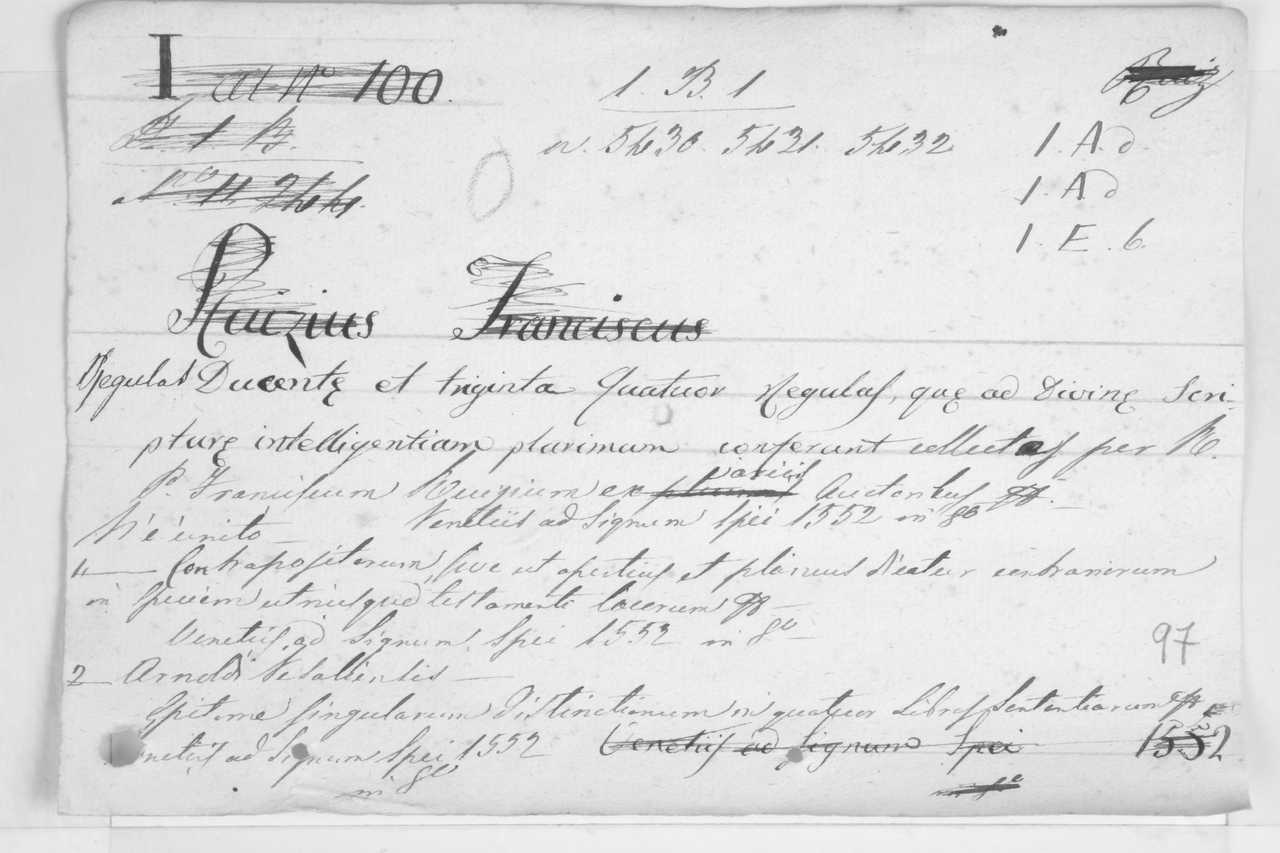 I al N.o 100. 1. B. 1 Ruiz
P. 1 B. n. 5430. 5421. 5432 1. A. d.
N.ro 11 244. 1. A d
1. E. 6.
Ruizius Franciscus
Regulas Ducentę et triginta Quatuor Regulas, quę ad Divinę Scri-
pturę intelligentiam plurimum conferant collectas per R.
P. Franciscum Ruizium ex variis Auctoribus
N' è unito Venetiis ad Signum Spei 1552 in 8o
1 Contrapositorum, sive ut apertius et planius dicatur contrariorum
in speciem utriusque testamenti locorum
Venetiis, ad Signum Spei 1552 in 8o
97
2 Arnoldi Vesaliensis
Epitome singularum Distinctionum in quatuor Libros Sententiarum
Venetiis ad Signum Spei 1552 Venetiis ad Signum Spei 1552
in 8o in 8o